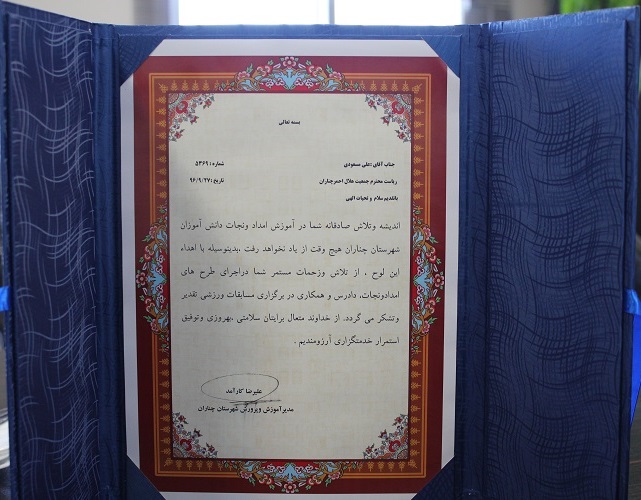 بسمه تعالی
جناب آقای :علی مسعودی
شماره: ۵۳۶۹
ریاست محترم جمعیت هلال احمرچناران
تاریخ :۹۶/۹/۲۷
باتقدیم سلام و تحیات الهی
اندیشه وتلاش صادقانه شما در آموزش امداد ونجات دانش آموزان
شهرستان چناران هیچ وقت از یاد نخواهد رفت ،بدینوسیله با اهداء
این لوح ، از تلاش وزحمات مستمر شما دراجرای طرح های
امدادونجات، دادرس و همکاری در برگزاری مسابقات ورزشی تقدیر
وتشکر می گردد. از خداوند متعال برایتان سلامتی ،بهروزی وتوفیق
استمرار خدمتگزاری آرزومندیم .
علیرضا کارآمد
مدیرآموزش وپرورش شهرستان چناران